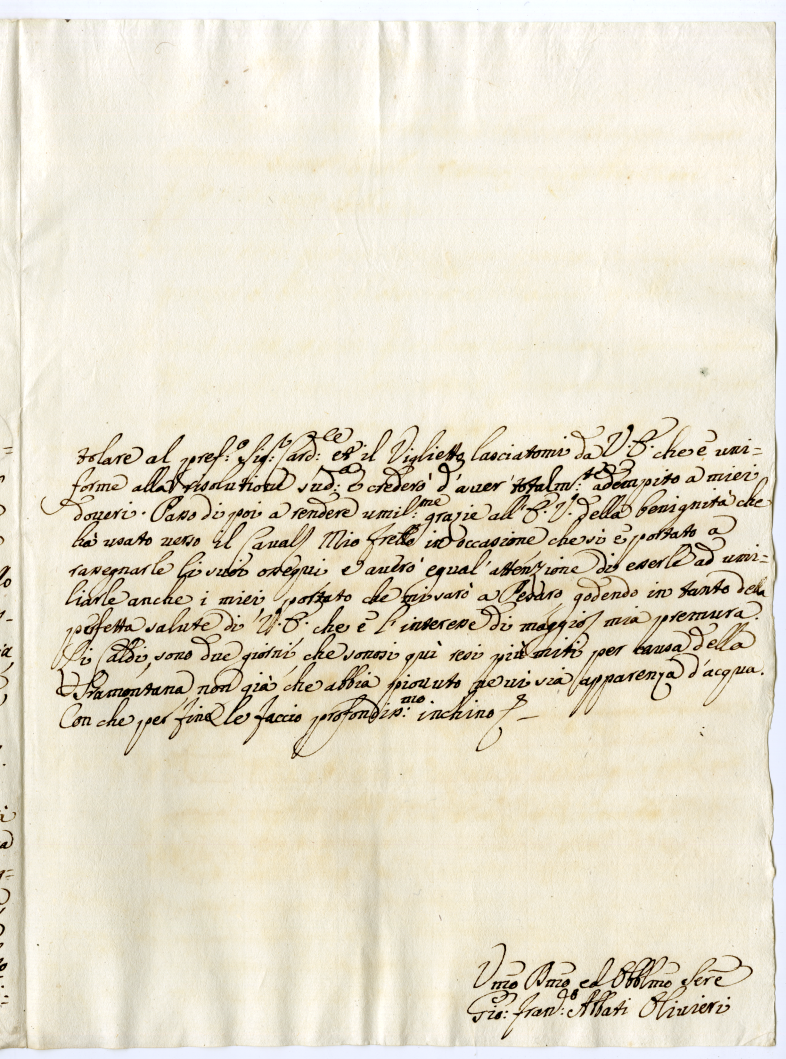 tolare al pref:o Sig:r Card:le et il Viglietto lasciatomi da V: E: che è uni=
forme alla risolutione sud:a e crederò d'aver totalm:te adempito a miei
doveri. Passo di poi a rendere umil:me grazie all'E: V: della benignità che
hà usato verso il Caval.r Mio frello in occasione che si è portato a
rassegnarle li suoi ossequi e averò egual'attenzione di esserle ad umi=
liarle anche i miei portato che mi sarò a Pesaro godendo in tanto della
perfetta salute di V: E: che è l'interesse di maggior mia premura.
Li Caldi, sono due giorni che sonosi quì resi più miti per causa della
Tramontana non già che abbia piovuto ne vi sia apparenza d'acqua.
Con che per fine le faccio profondiss:mo inchino
Vmo Dmo ed Obblmo Serre
Gio: Fran:co Abbati Olivieri